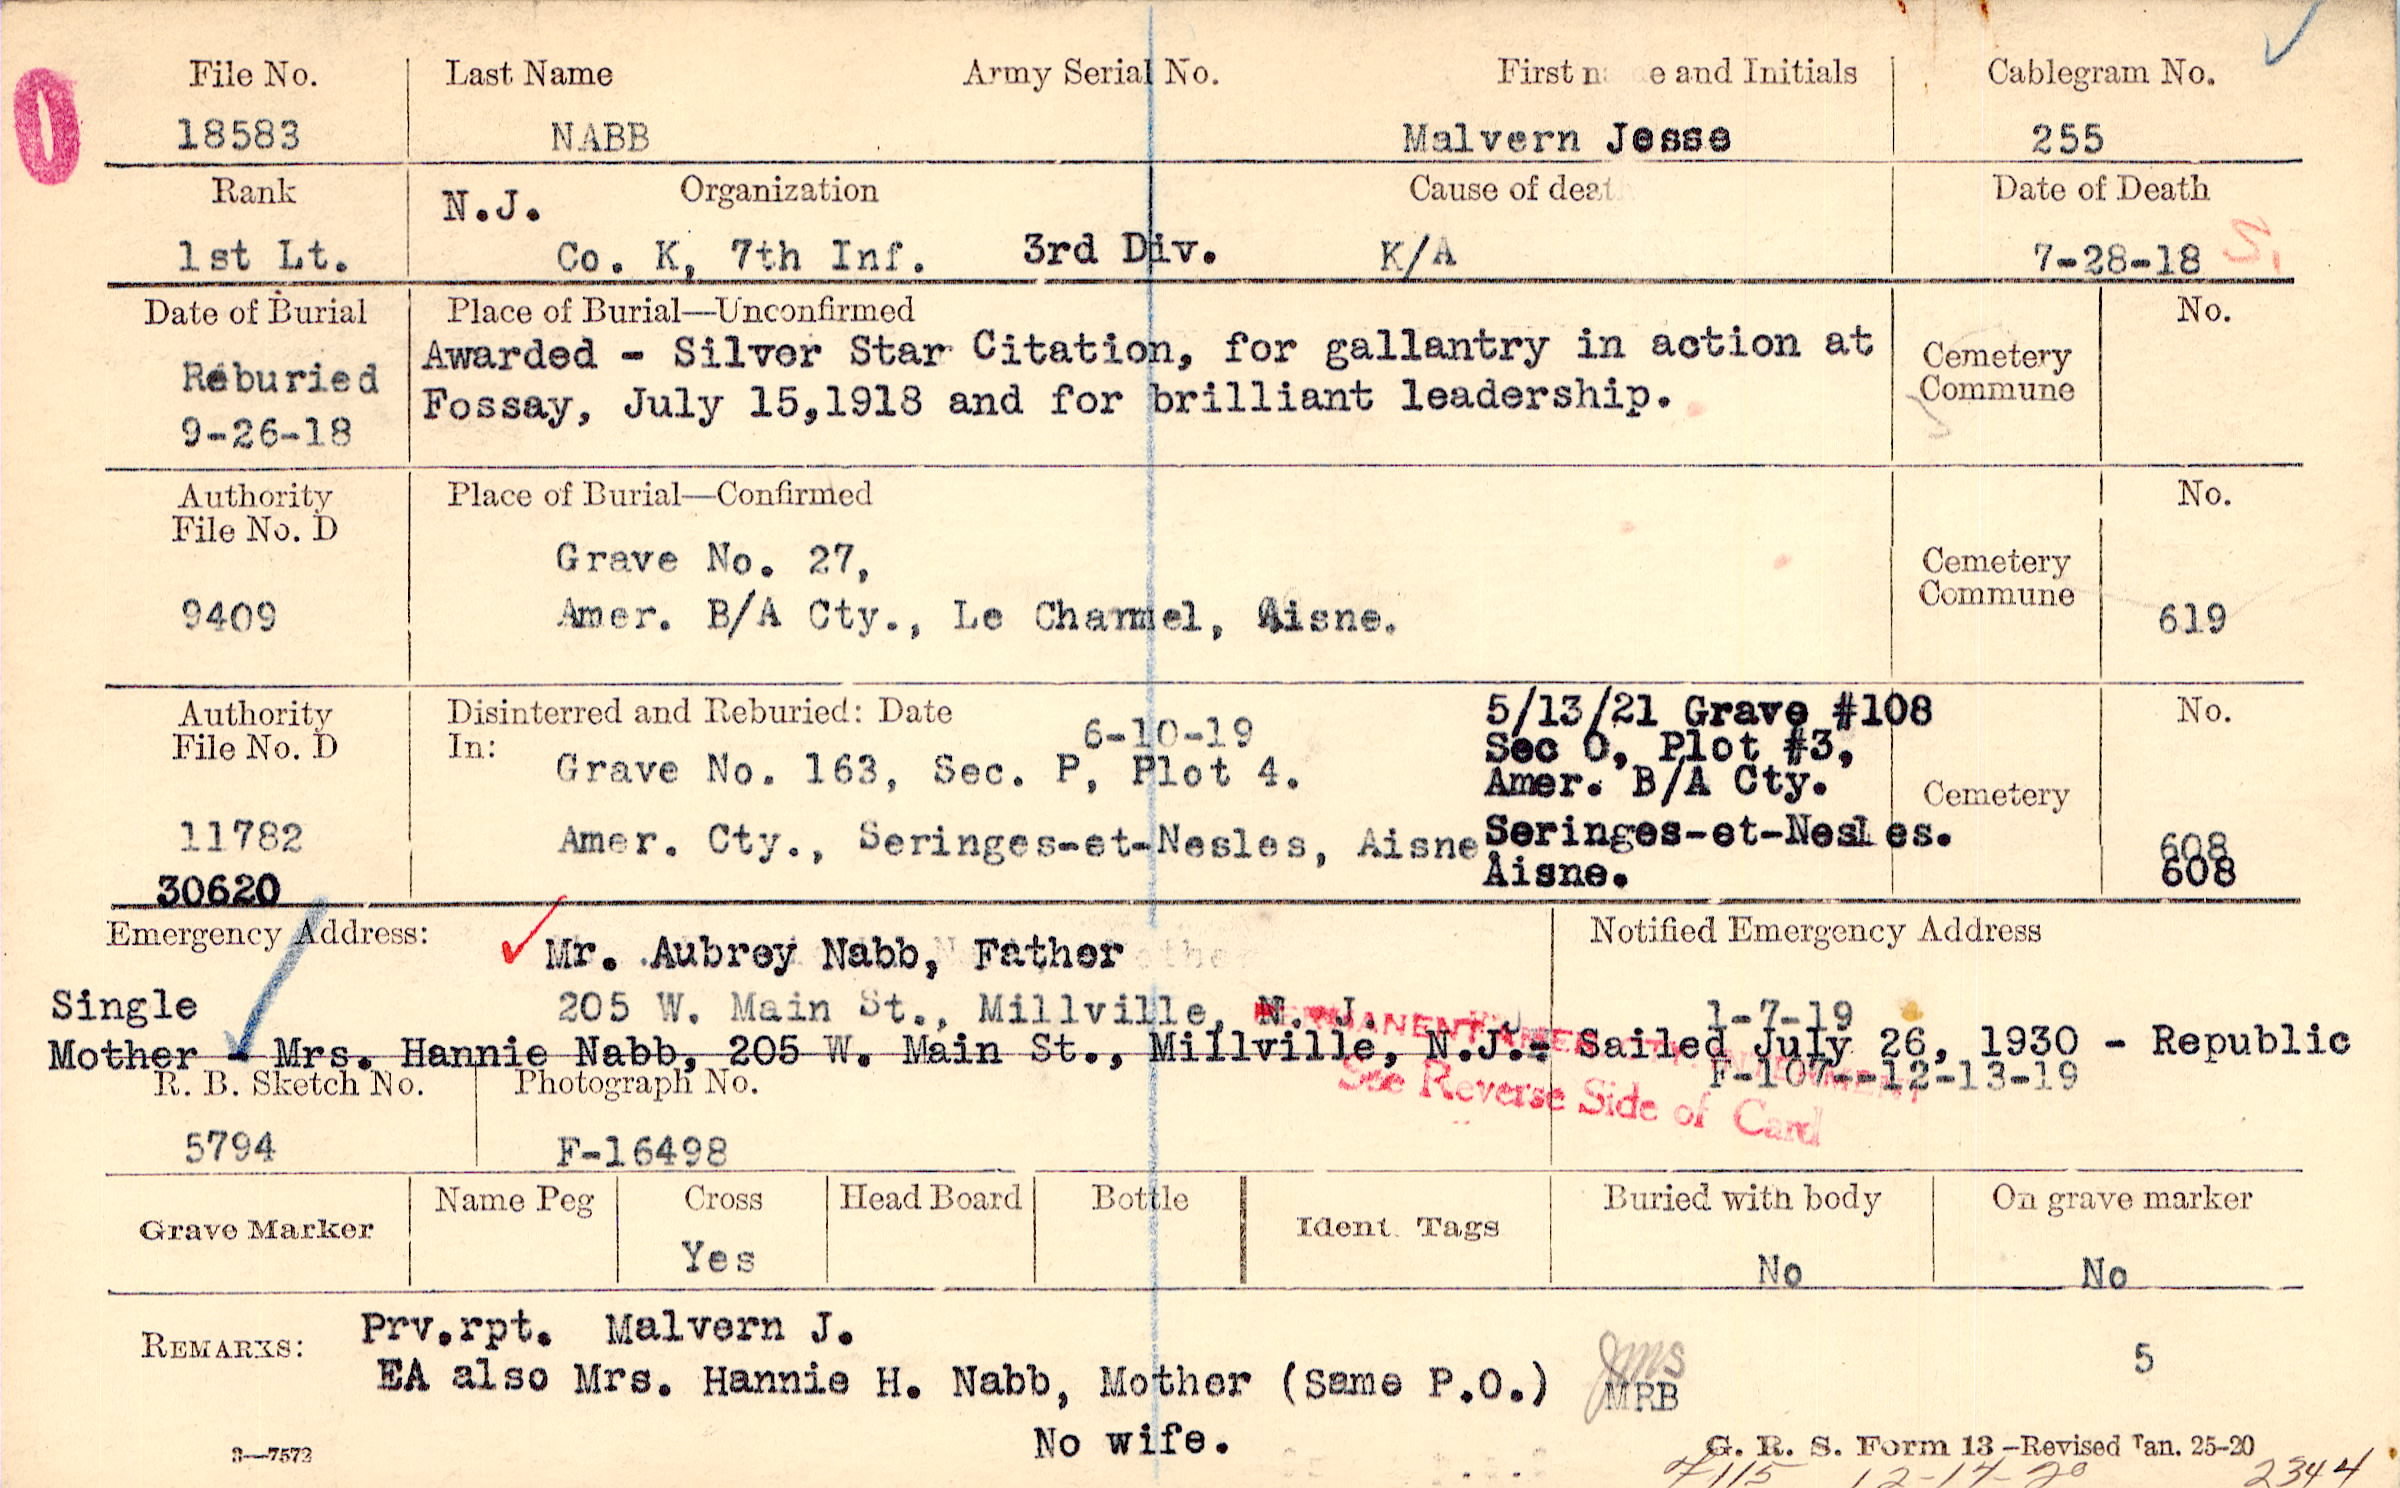 File No. Last Name Army Serial No. First n e and Initials Cablegram No.
18583 NABB Malvern Jesse 255
Rank N.J. Organization Cause of death Date of Death
1st Lt. Co. K, 7th Inf. 3rd Div. K/A 7-28-18 S.
Date of Burial Place of Burial—Unconfirmed No.
Reburied
9-26-18
Awarded - Silver Star Citation, for gallantry in action at
Fossay, July 15,1918 and for brilliant leadership.
Cemetery
Commune
Authority
File No. D
9409
Place of Burial—Confirmed No.
Grave No. 27,
Amer. B/A Cty., Le Charmel, Aisne.
Cemetery
Commune
619
Authority
File No. D
11782
30620
Disinterred and Reburied: Date 6-10-19
In:
Grave No. 163, Sec. P, Plot 4.
Amer. Cty., Seringes-et-Nesles, Aisne
5/13/21 Grave #108
Sec O, Plot #3,
Amer. B/A Cty.
Seringes-et-Nesles.
Aisne.
No.
Cemetery
608
608
Emergency Address: Mr. Aubrey Nabb, Father Notified Emergency Address
Single 205 W. Main St., Millville, N. J. 1-7-19
Mother - Mrs. Hannie Nabb, 205 W. Main St., Millville, N.J.- Sailed July 26, 1930 - Republic
F-107--12-13-19
PERMANENT
See Reverse Side of Card
R. B. Sketch No. Photograph No.
5794 F-16498
Grave Marker Name Peg Cross Head Board Bottle Ident. Tags Buried with body On grave marker
Yes No No
REMARKS: Prv.rpt. Malvern J.
EA also Mrs. Hannie H. Nabb, Mother (Same P.O.) JMS
MRB
5
No wife.
3—7572 G. R. S. Form 13—Revised Jan. 25-20
12-14-20 2344